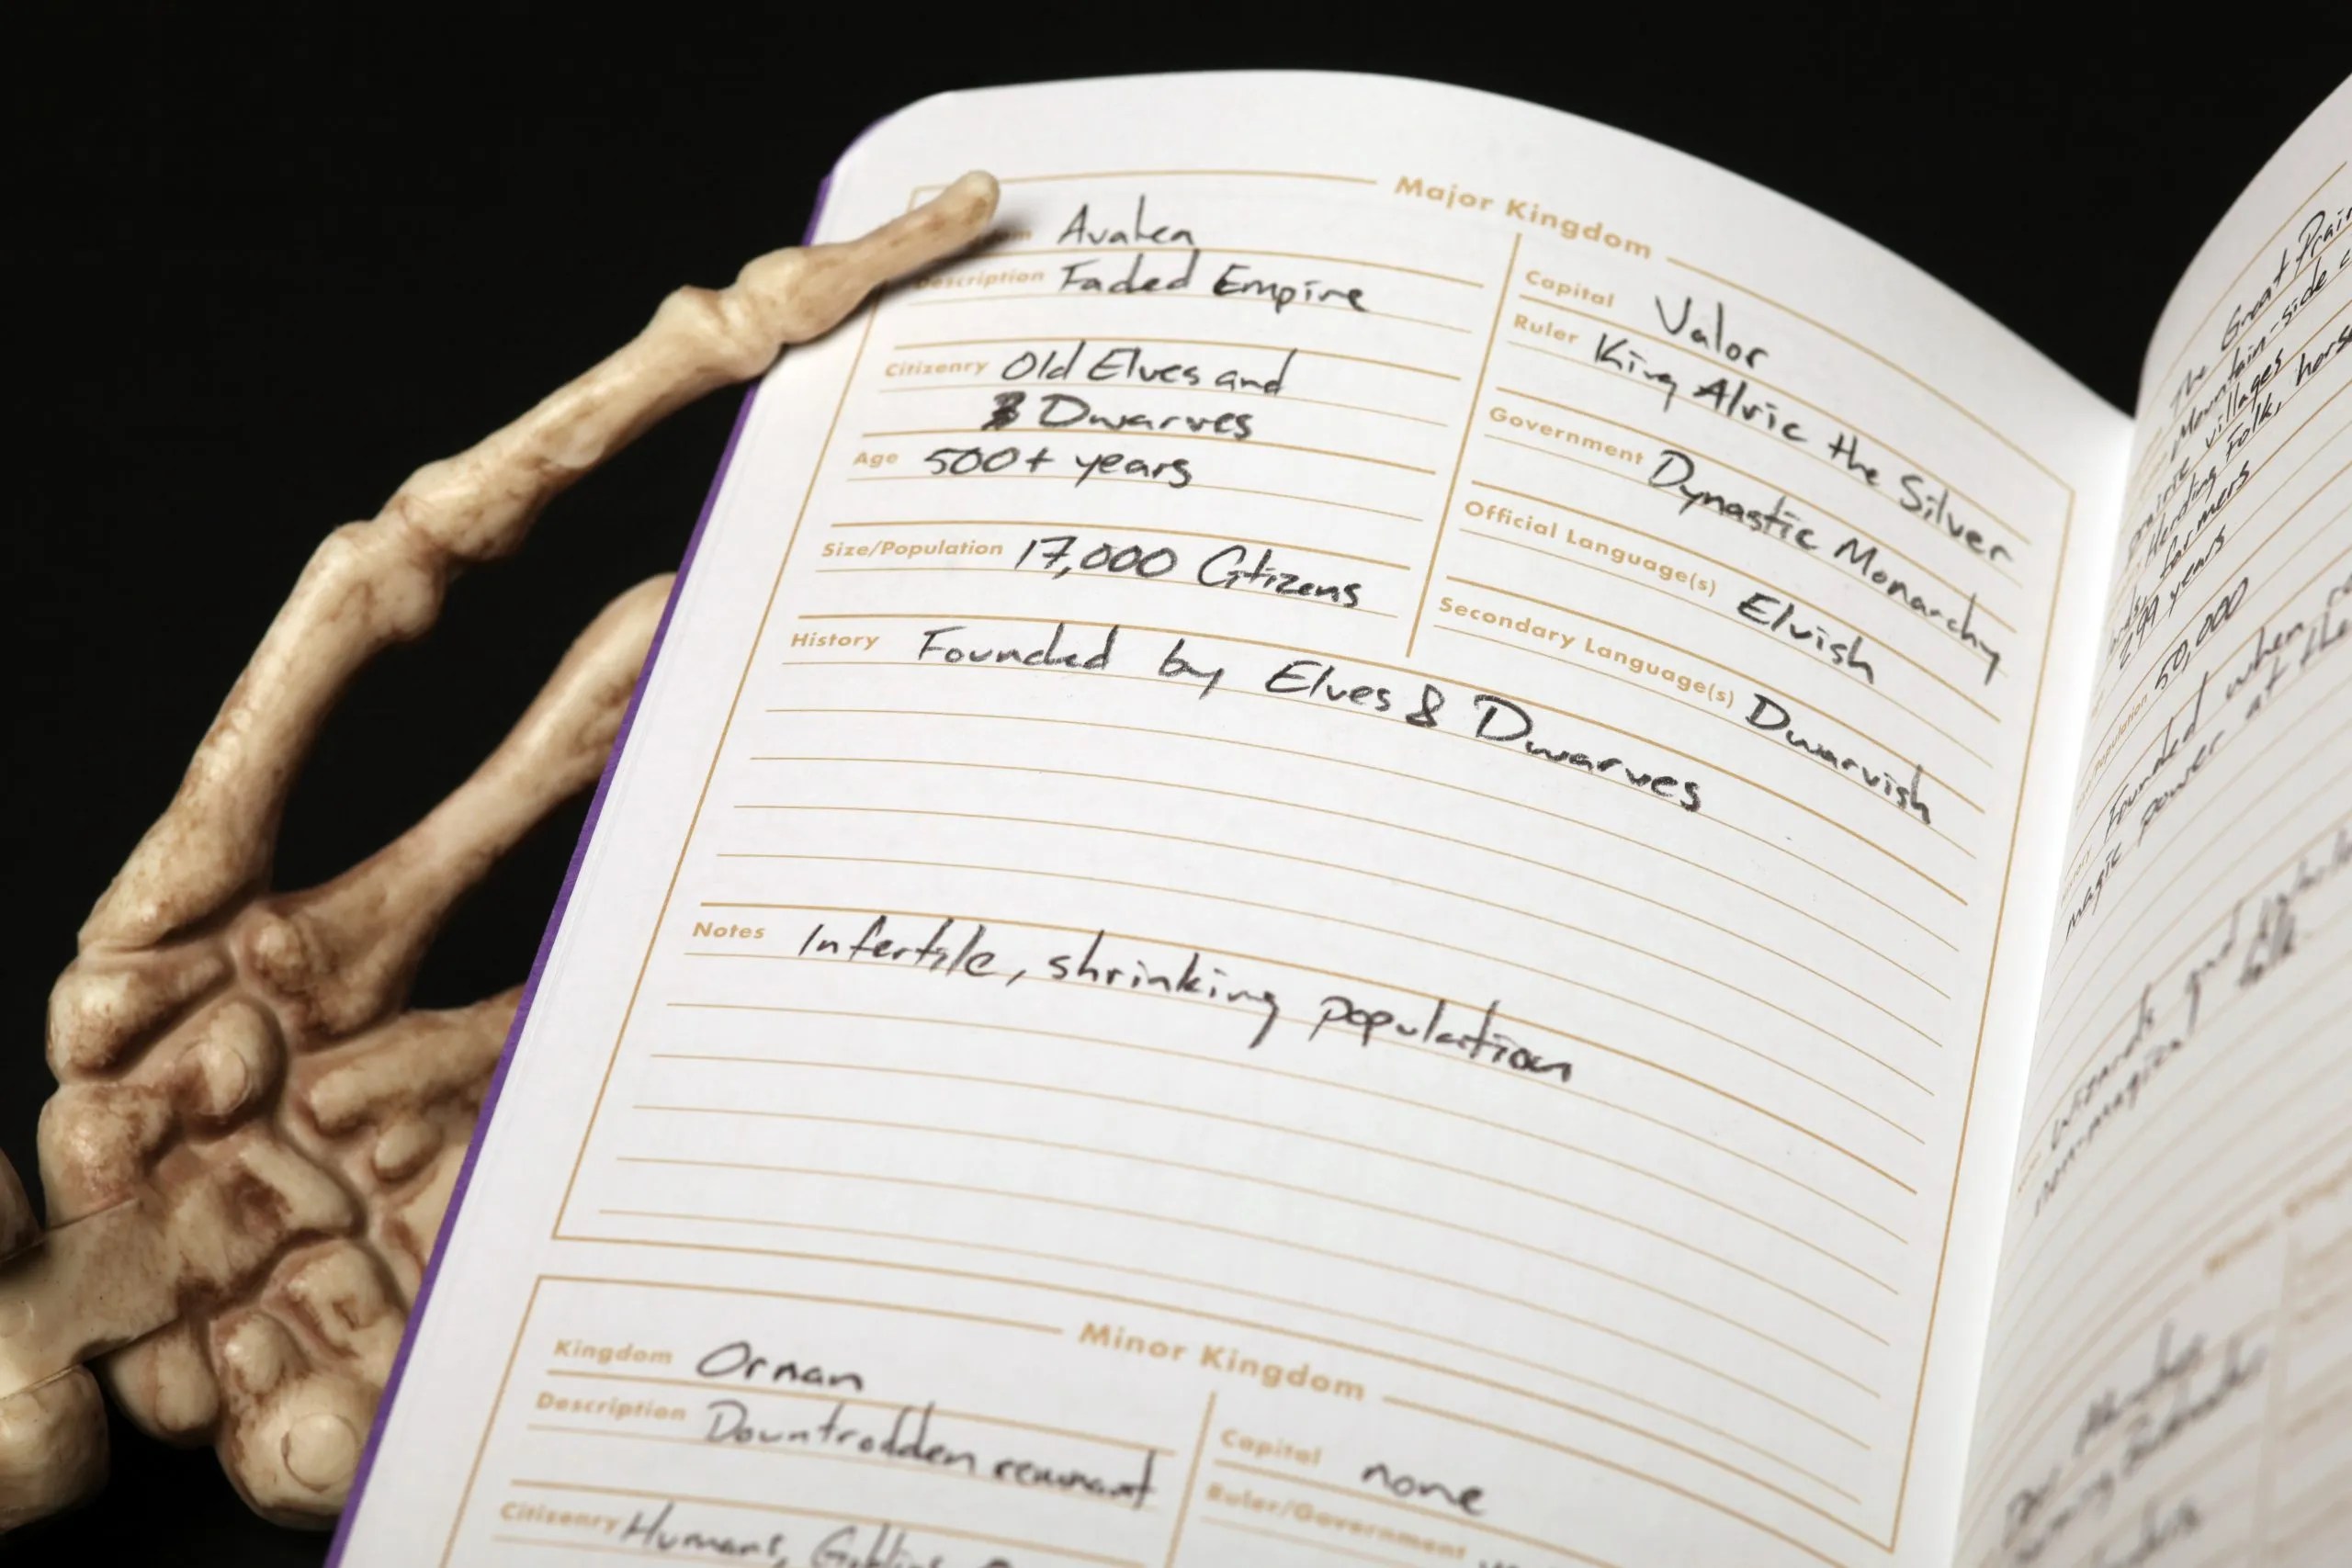 Major Kingdom
Avalen
Description Faded Empire
Citizenry Old Elves and
Dwarves
Age 500+ years
Size/Population 17,000 Citizens
Capital Valor
Ruler King Alric the Silver
Government Dynastic Monarchy
Official Language(s) Elvish
Secondary Language(s) Dwarvish
History Founded by Elves & Dwarves
Notes Infertile, shrinking population
Minor Kingdom
Kingdom Ornan
Description Downtrodden remnant
Citizenry Humans, Goblins
Capital none
Ruler/Government
The Great
Mountain-side
villages
Herding Folk, horse
farmers
299 years
Population 50,000
Founded when
magic power at the
wizards and
non-magical folk